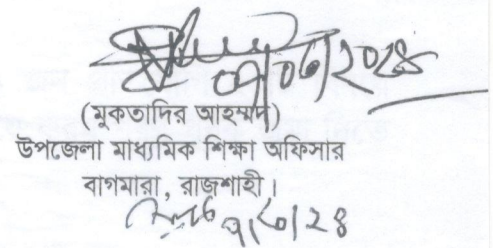 ০৭/০৩/২০২৪
(মুকতাদির আহম্মদ)
উপজেলা মাধ্যমিক শিক্ষা অফিসার
বাগমারা, রাজশাহী।
৭/৩/২৪